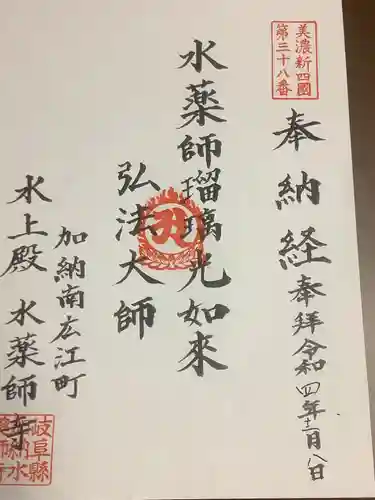 美濃新四國
第三十八番
奉納経
奉拜 令和四年十二月八日
水薬師瑠璃光如来
弘法大師
加納南広江町
水上殿 水薬師寺
岐阜縣